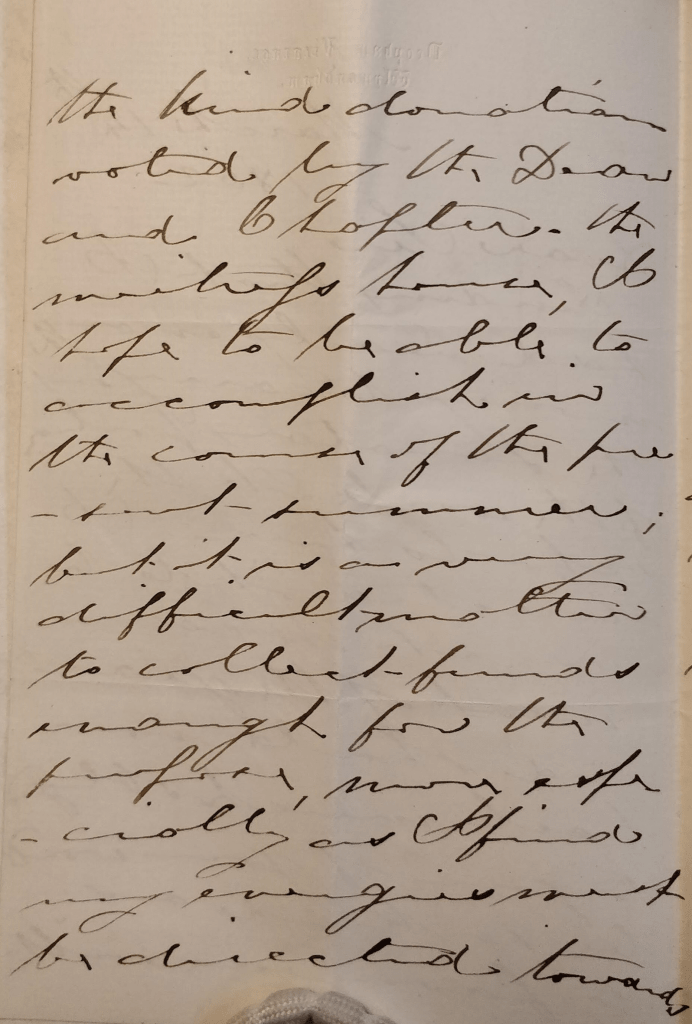 the kind donation
voted by the Dean
and Chapter. the
meetings house, I
hope to be able to
accomplish in
the course of the pre
-sent summer;
but it is a very
difficult matter
to collect funds
enough for the
purpose, more espe
-cially as I find
my energies must
be directed towards